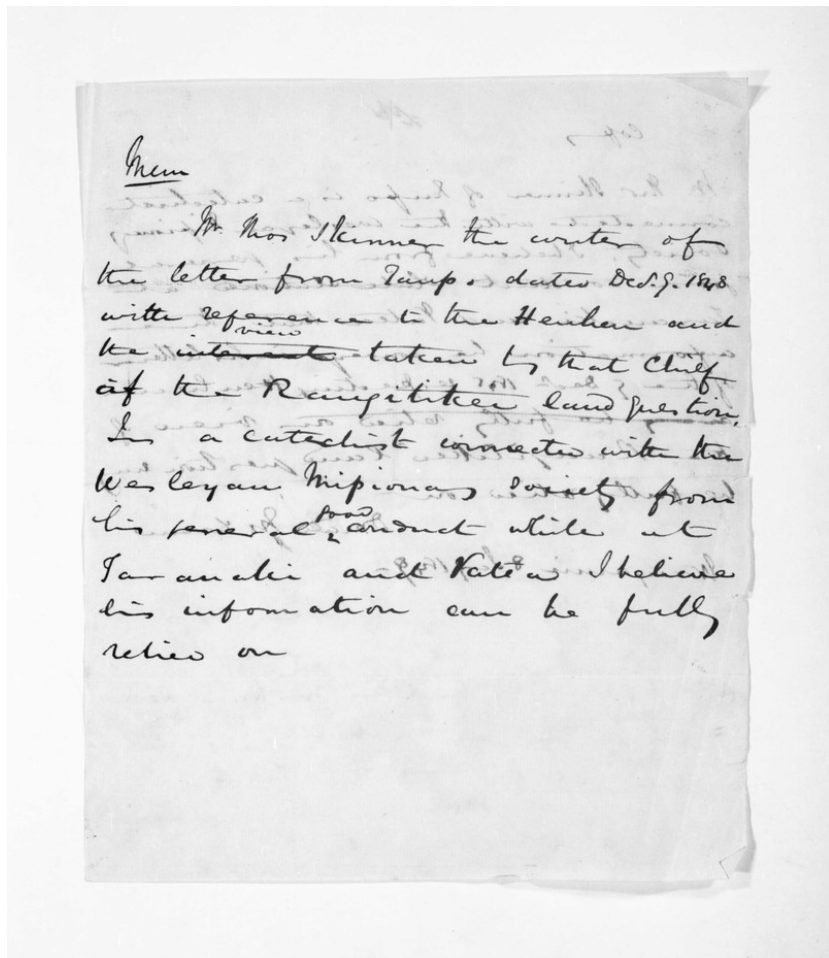 Mem
Mr Thos Skinner the writer of
the letter from Taupo dated Decr. 9. 1848
with reference to the Heuheu and
view
the interest taken by that Chief
of the Rangitikei land question.
Is a catechist connected with the
Wesleyan Missionary Society from
good
his general conduct while at
Taranaki and I believe
his information can be fully
relied on